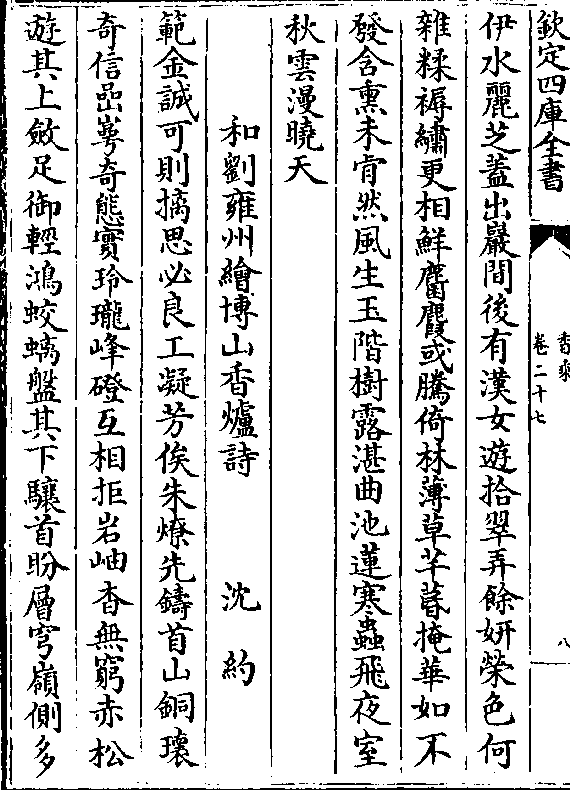 欽定四庫全書
香乘
卷二十七
八
伊水麗芝蓋出巖間後有漢女遊拾翠弄餘妍榮色何
雜糅褥繡更相鮮麏麚或騰倚林薄草芊萇掩華如不
發含熏未肎然風生玉階樹露湛曲池蓮寒蟲飛夜室
秋雲漫曉天
和劉雍州繪博山香爐詩 沈約
範金誠可則摛思必良工凝芳俟朱燎先鑄首山銅瓌
奇信喦崿奇態實玲瓏峰磴互相拒岩岫杳無窮赤松
遊其上斂足御輕鴻蛟螭盤其下驤首盼層穹嶺側多